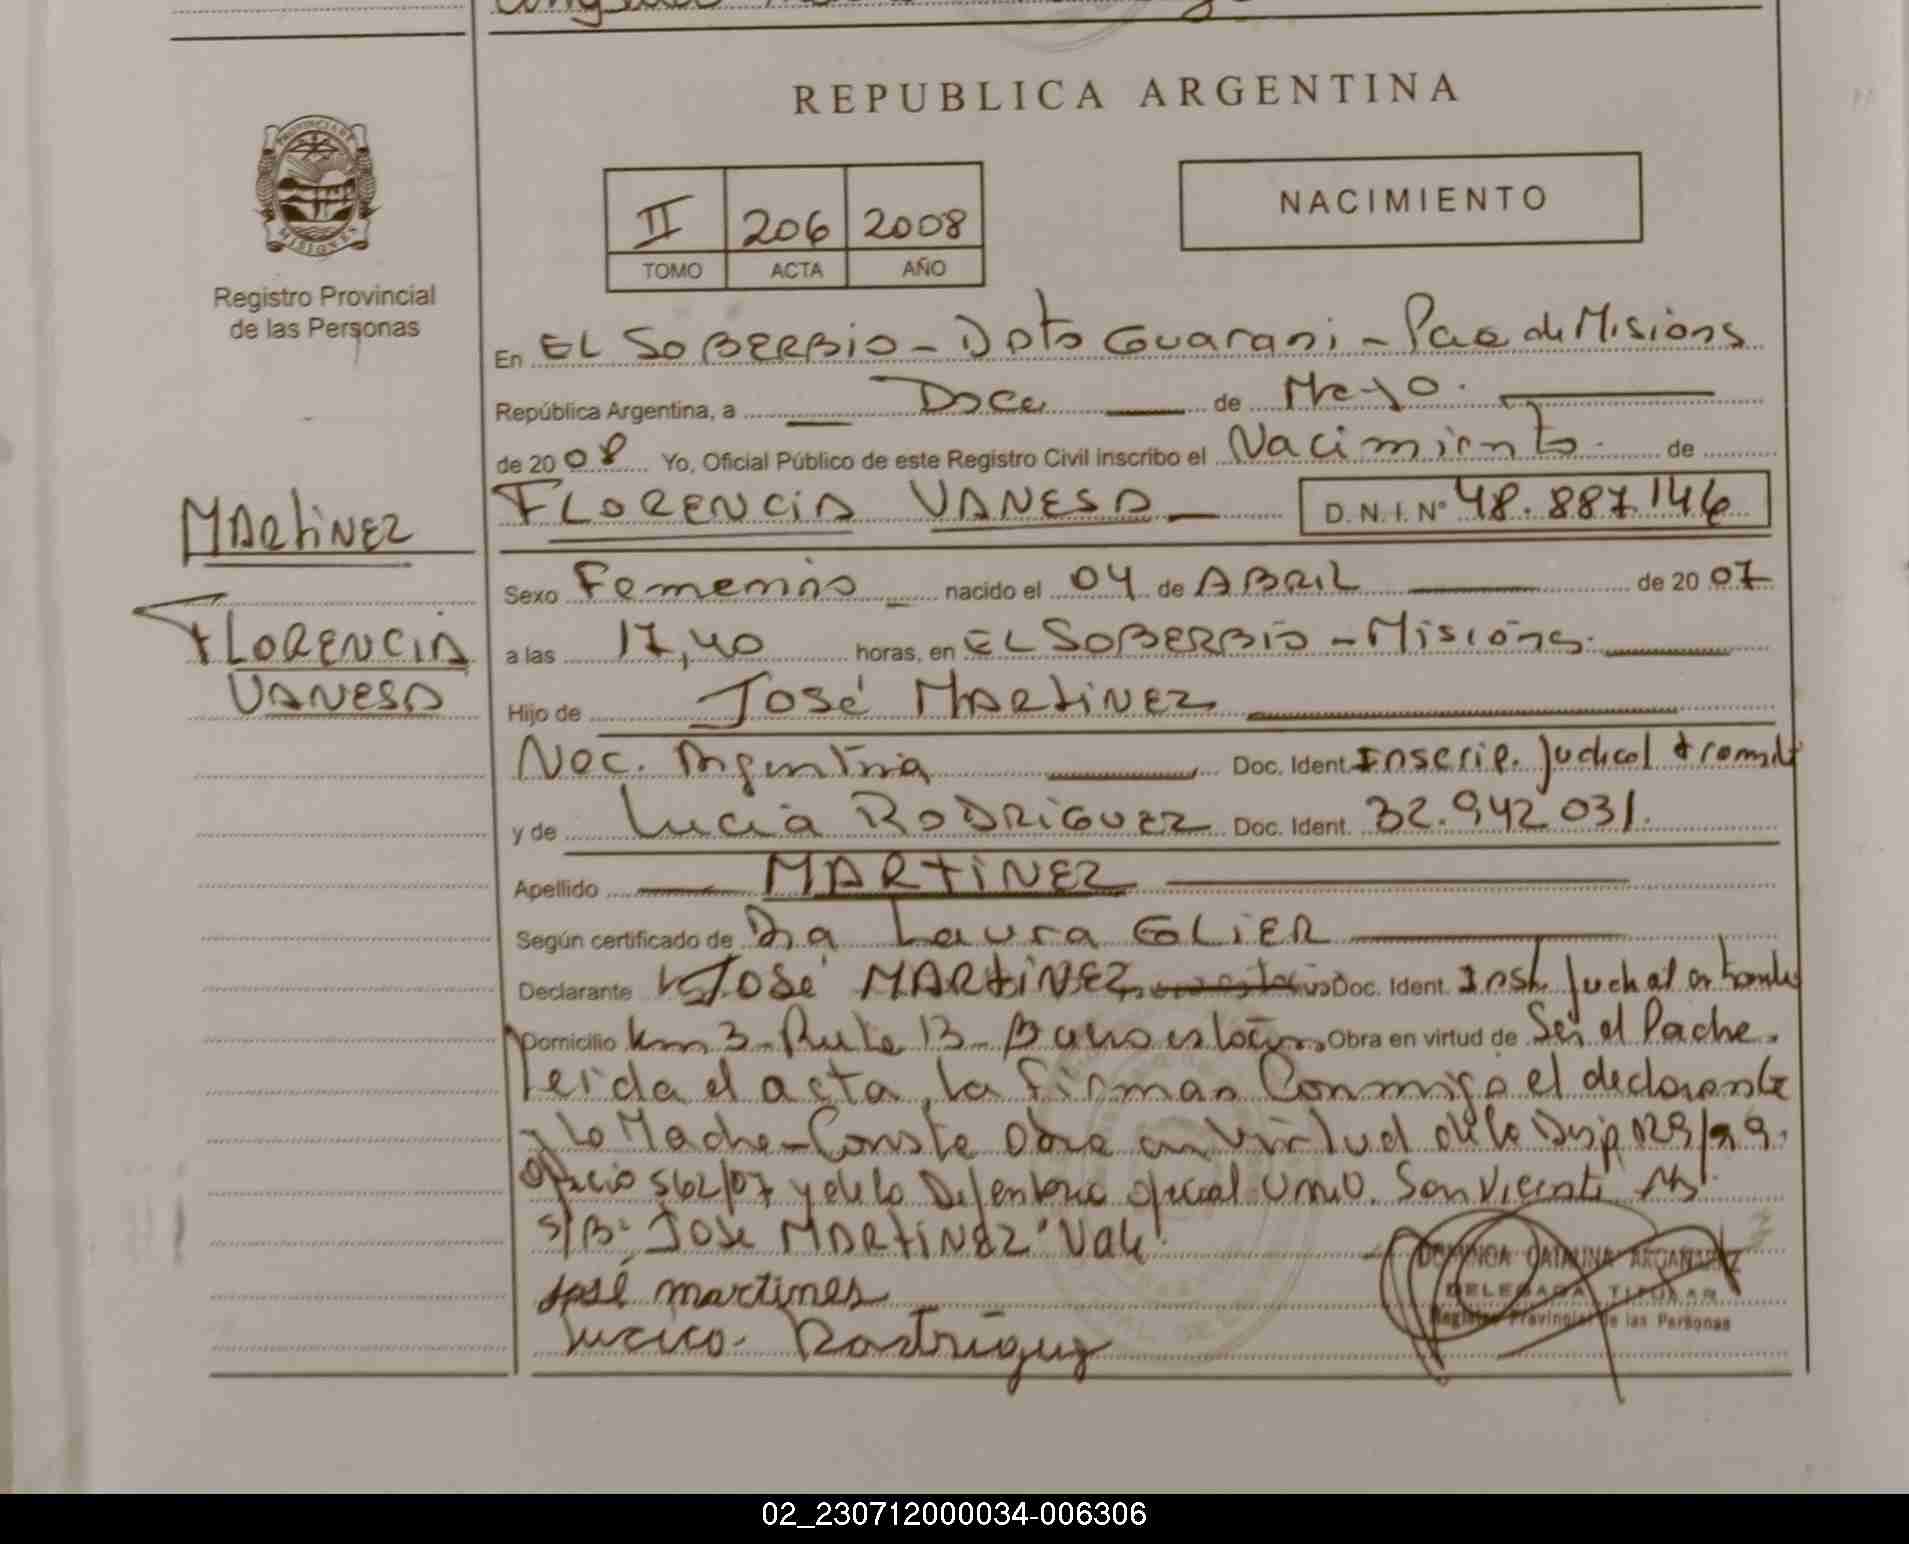 REPUBLICA ARGENTINA
PROVINCIA DE
MISIONES
Registro Provincial
de las Personas
NACIMIENTO
II 206 2008
TOMO ACTA AÑO
En EL SOBERBIO - Dpto Guarani - Pcia de Misions
República Argentina, a Doce de Mayo.
de 20 08 Yo, Oficial Público de este Registro Civil inscribo el Nacimiento de
FLORENCIA VANESA D.N.I. Nº 48.887.146
MARtiNEZ
FLORENCIA
VANESA
Sexo Femenino nacido el 04 de ABRIL de 20 07
a las 17,40 horas, en EL SOBERBIO - Misions.
Hijo de José MARtiNEZ
Nac. Argentina Doc. Ident. Inscrip. Judicial tramite
y de Lucia RODRIGUEZ Doc. Ident. 32.942.031.
Apellido MARtiNEZ
Según certificado de Dra Laura GLIER
Declarante José MARtiNEZ Doc. Ident.
Domicilio km 3 - Ruta 13 - Obra en virtud de Ser el Padre.
Leida el acta, la firman Conmigo el declarante
y la Madre - Conste Obra en virtud de la Disp 129/99.
Oficio 562/07 y de la Defensoria oficial San Vicente
S/B: José MARtiNEZ "Vale"
José martines
Rodriguez
DOMINGA CATALINA
DELEGADA TITULAR
Registro Provincial de las Personas
02_230712000034-006306